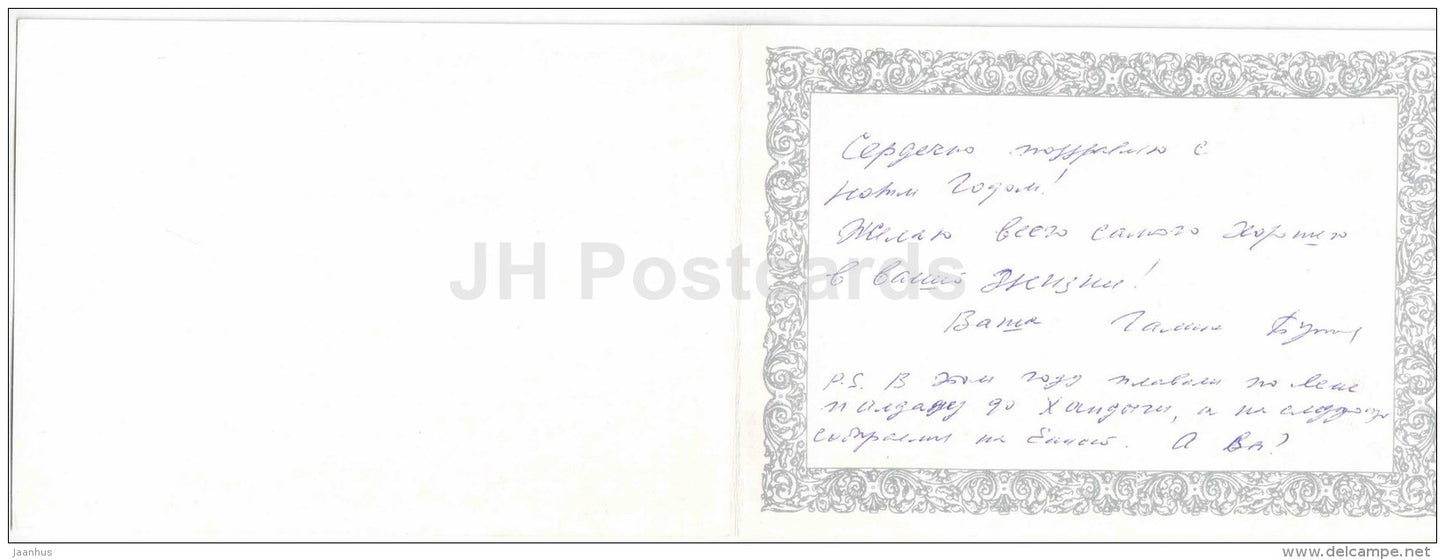 Сердечно поздравляю с
Новым Годом!
Желаю всего самого хорошего
в вашей жизни!
Ваша Галина
P.S. В этом году плавали по Лене
и Алдану до Хандыги, а на следующий
собираемся на Енисей. А Вы?
JH Postcards
Jaanhus
www.delcampe.net